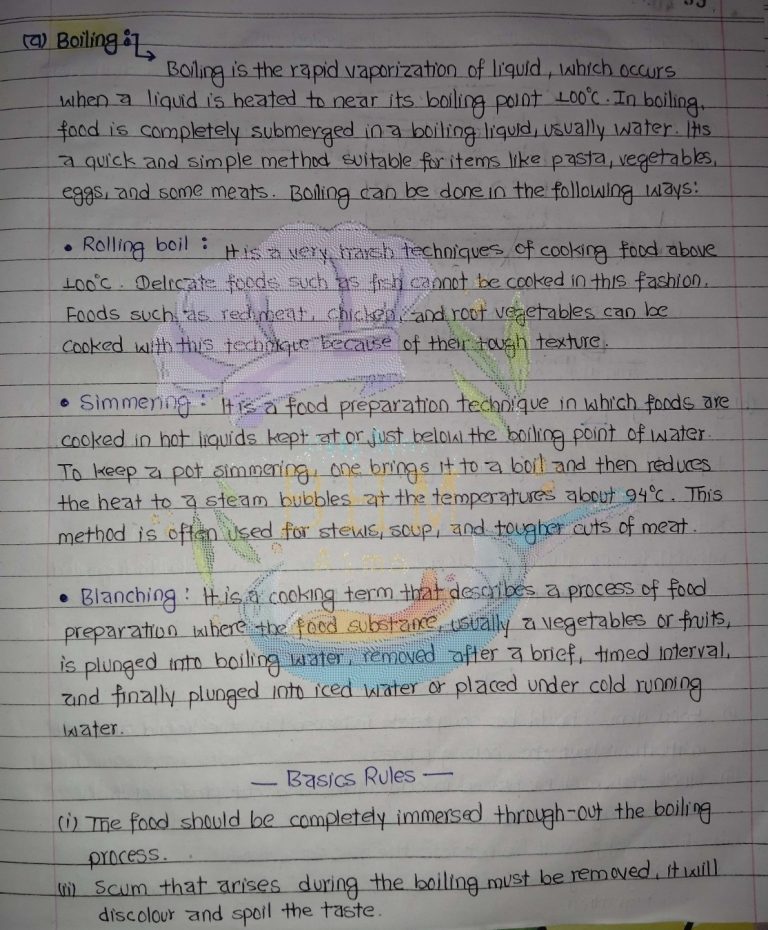 (a) Boiling :
Boiling is the rapid vaporization of liquid, which occurs
when a liquid is heated to near its boiling point 100°C. In boiling,
food is completely submerged in a boiling liquid, usually water. Itis
a quick and simple method suitable for items like pasta, vegetables,
eggs, and some meats. Boiling can be done in the following ways:
• Rolling boil : It is a very harsh techniques of cooking food above
100°C. Delicate foods such as fish cannot be cooked in this fashion.
Foods such as red meat, chicken, and root vegetables can be
cooked with this technique because of their tough texture.
• Simmering : It is a food preparation technique in which foods are
cooked in hot liquids kept at or just below the boiling point of water.
To keep a pot simmering, one brings it to a boil and then reduces
the heat to a steam bubbles at the temperatures about 94°C. This
method is often used for stews, soup, and tougher cuts of meat.
BHM
• Blanching : It is a cooking term that describes a process of food
preparation where the food substance, usually a vegetables or fruits,
is plunged into boiling water, removed after a brief, timed interval,
and finally plunged into iced water or placed under cold running
water.
— Basics Rules —
(i) The food should be completely immersed through-out the boiling
process.
(ii) Scum that arises during the boiling must be removed, it will
discolour and spoil the taste.